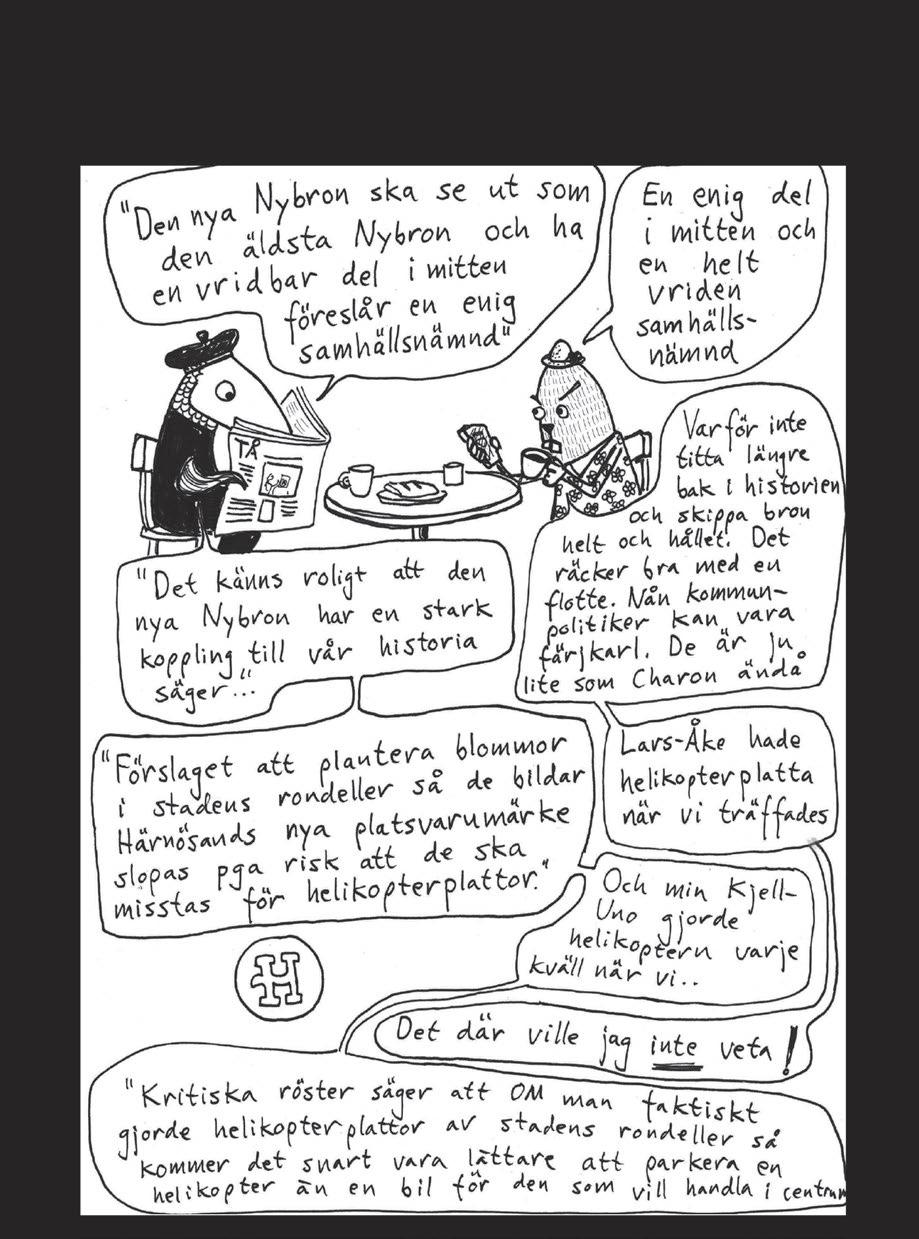 "Den nya Nybron ska se ut som
den äldsta Nybron och ha
en vridbar del i mitten
föreslår en enig
samhällsnämnd"
En enig del
i mitten och
en helt
vriden
samhälls-
nämnd
TÅ
Varför inte
titta längre
bak i historien
och skippa bron
helt och hållet. Det
räcker bra med en
flotte. Nån kommun-
politiker kan vara
färjkarl. De är ju
lite som Charon ändå
"Det känns roligt att den
nya Nybron har en stark
koppling till vår historia
säger..."
"Förslaget att plantera blommor
i stadens rondeller så de bildar
Härnösands nya platsvarumärke
slopas pga risk att de ska
misstas för helikopterplattor."
Lars-Åke hade
helikopterplatta
när vi träffades
Och min Kjell-
Uno gjorde
helikoptern varje
kväll när vi..
H
Det där ville jag inte veta!
"Kritiska röster säger att OM man faktiskt
gjorde helikopterplattor av stadens rondeller så
kommer det snart vara lättare att parkera en
helikopter än en bil för den som vill handla i centrum